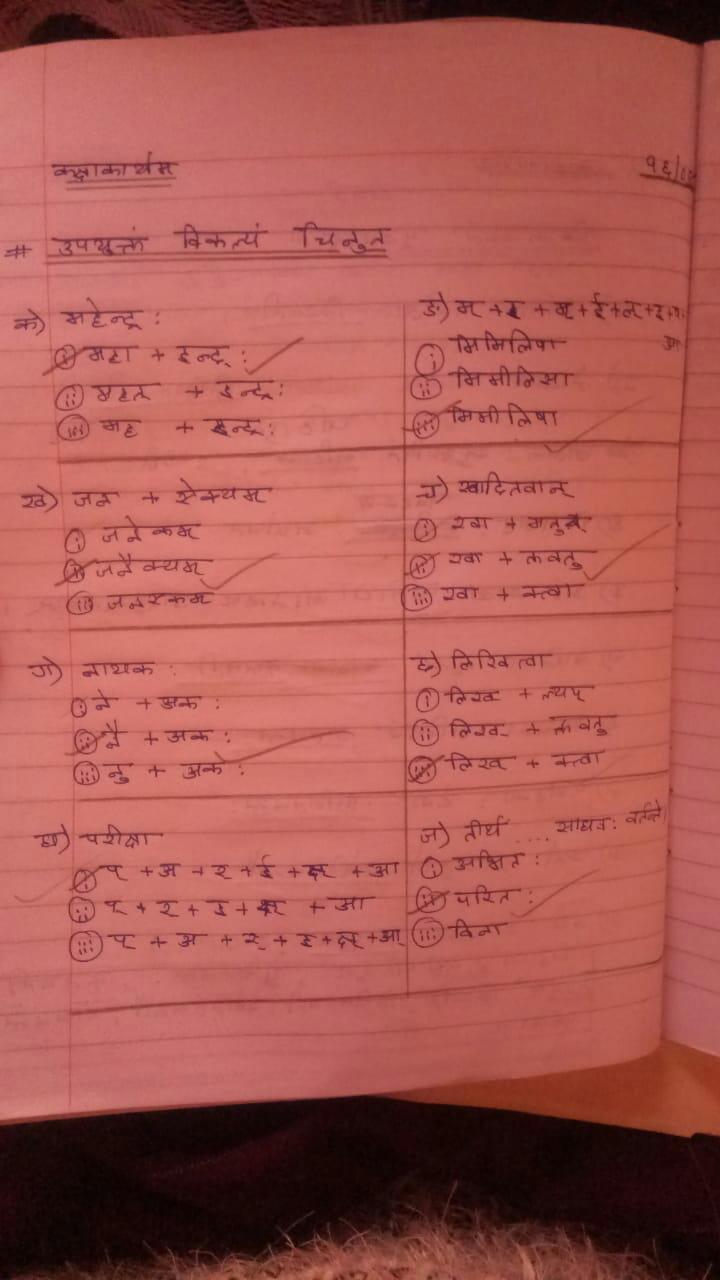 कक्षाकार्यम
१६/
# उपयुक्तं विकल्पं चिनुत
क) महेन्द्र:
i महा + इन्द्र:
ii महत् + इन्द्र:
iii मह + इन्द्र:
ख) जन + ऐक्यम्
i जनेकम्
ii जनैक्यम्
iii जनरकम्
ग) नायक:
i ने + अक:
ii नै + अक:
iii नु + अक:
घ) परीक्षा
i प् + अ + र + ई + क्ष् + आ
ii प् + र + इ + क्ष् + आ
iii प् + अ + र् + इ + क्ष् + आ
ङ) म् + इ + म् + ई + ल् + इ +
आ
i मिमिलिषा
ii मिमीलिसा
iii मिमीलिषा
च) खादितवान्
i खा + मतुप्
ii खा + क्तवतु
iii खा + क्त्वा
छ) लिखित्वा
i लिख + ल्यप्
ii लिख + क्तवतु
iii लिख + क्त्वा
ज) तीर्थ ... साधव: वर्तन्ते।
i अभित:
ii परित:
iii विना